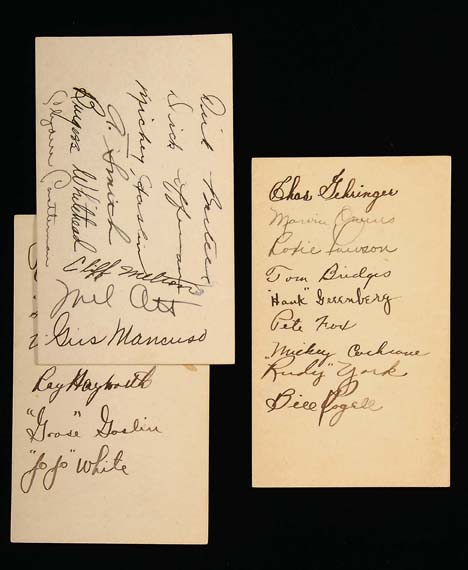 Dick Bartell
Dick
Mickey Haslin
A. Smith
Burgess Whitehead
Cliff Melton
Mel Ott
Gus Mancuso
Ray Hayworth
"Goose" Goslin
"Jo Jo" White
Chas Gehringer
Marvin Owen
Roxie Lawson
Tom Bridges
"Hank" Greenberg
Pete Fox
"Mickey Cochrane
Rudy" York
Bill Rogell